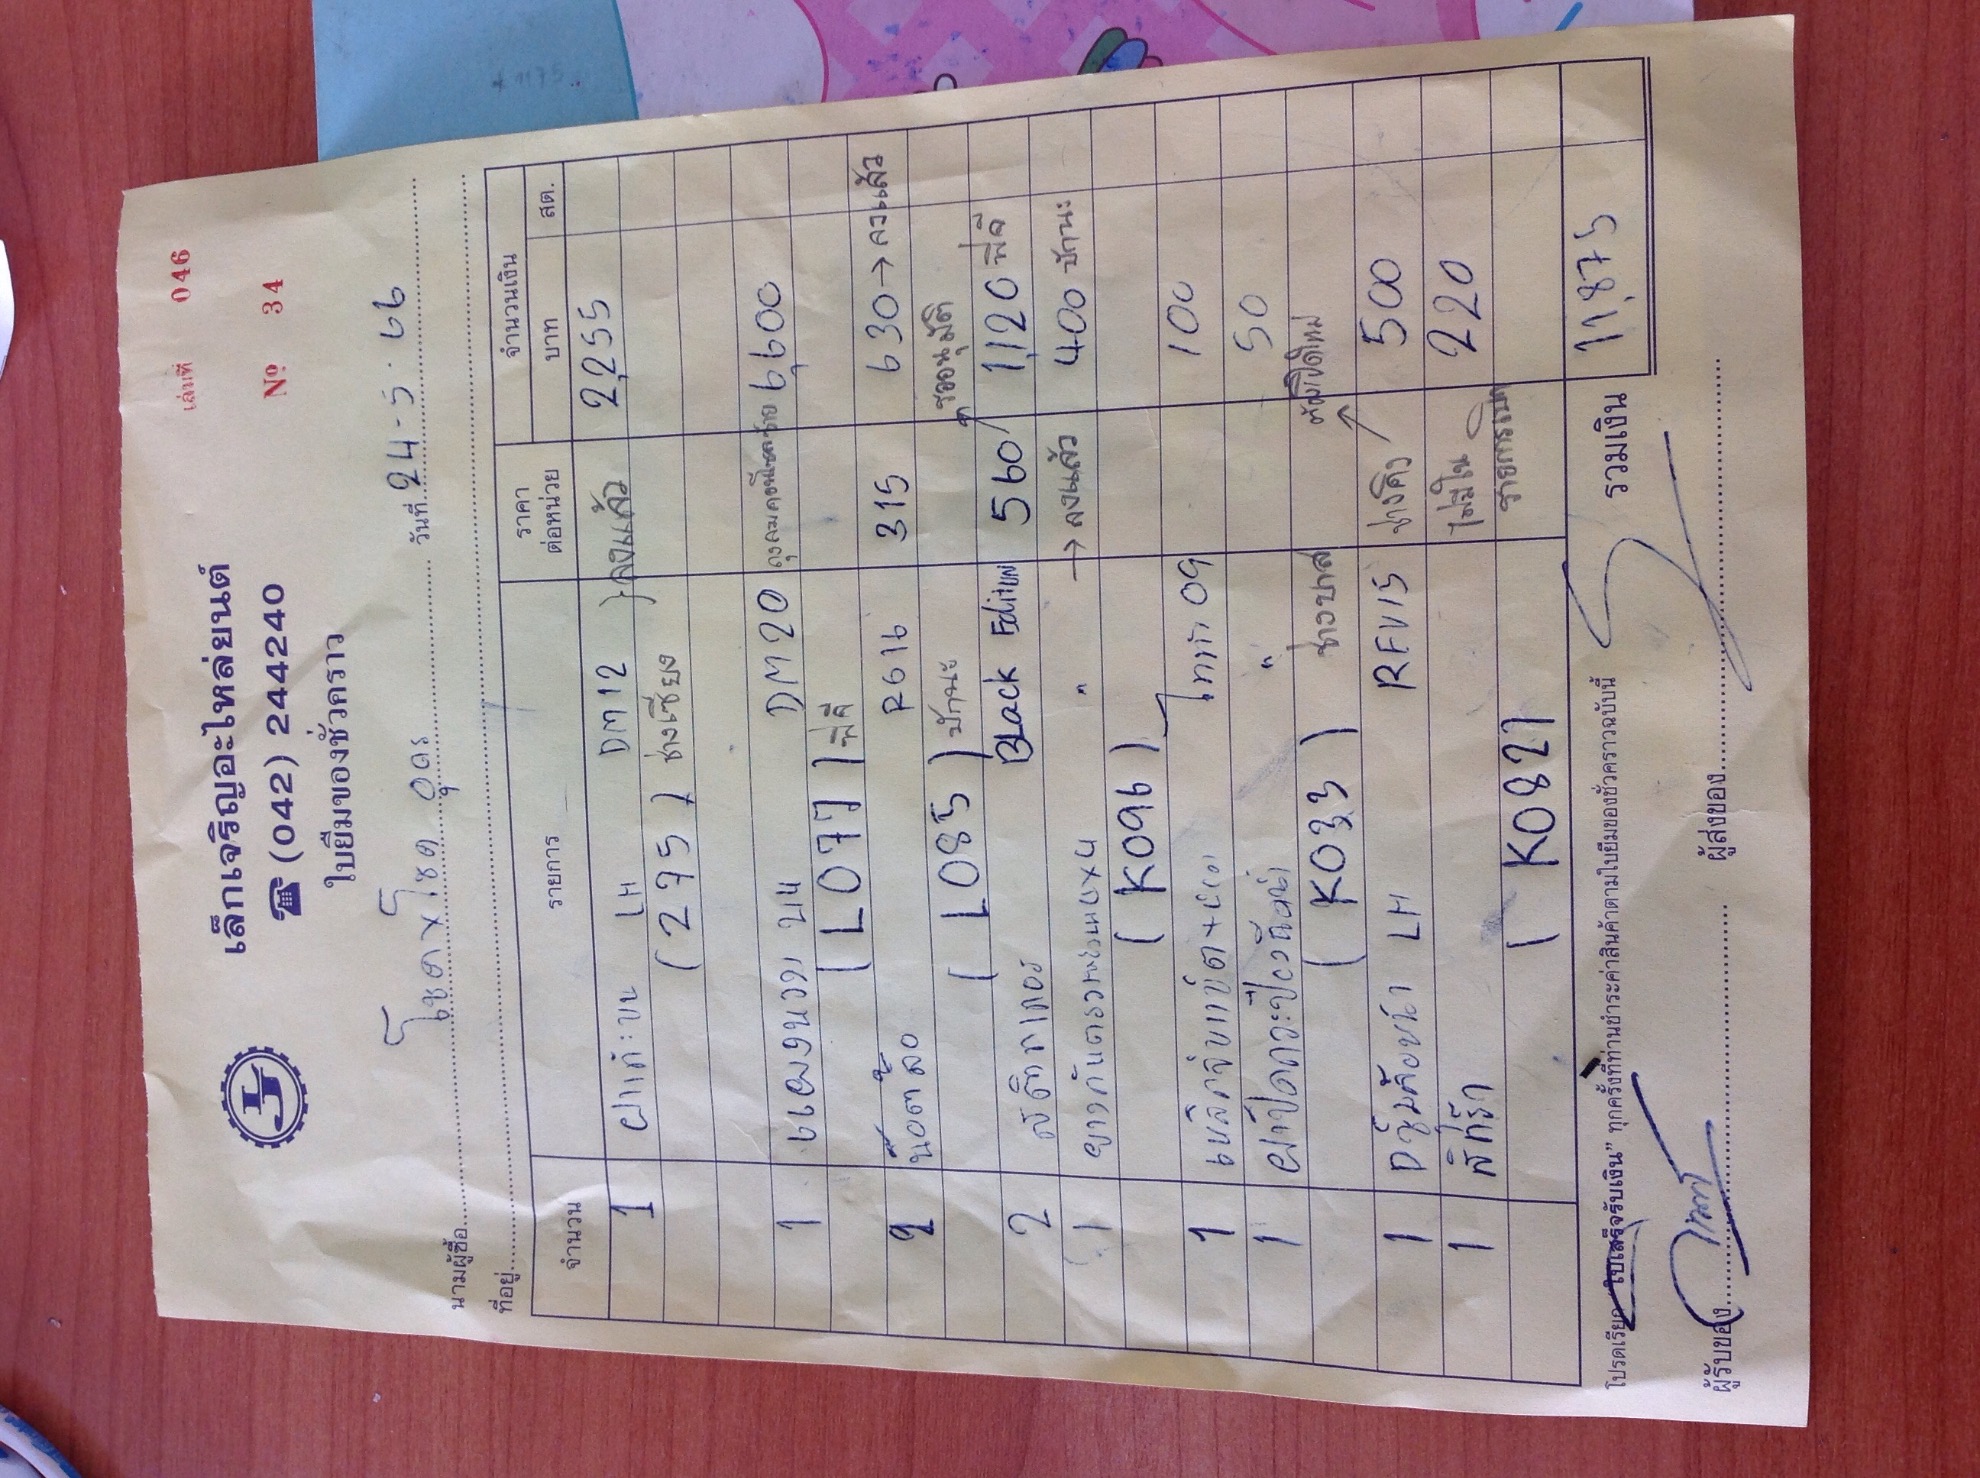 เล่มที่ 046
เล็กเจริญอะไหล่ยนต์
☎ (042) 244240
Nº 34
ใบยืมของชั่วคราว
นามผู้ซื้อ โชควโชค อุดร วันที่ 24-5-66
ที่อยู่
จำนวน รายการ ราคาต่อหน่วย จำนวนเงิน
บาท สต.
1 ฝาแค๊ะบน LH DM12 } ลงแล้ว 2,255
(275) ช่างเซียง
1 แผงนวม บน DM20 6,600
(L077) พี่ดี
2 น๊อตล้อ RG16 315 630 → ลงแล้ว
(L085) ปักมะ รออนุมัติ
2 สติกเกอร์ Black Edition 560 1,120 พี่ดี
1 " → ลงแล้ว 400 ปักมะ
(K096)
1 ไทเกอ 09 100
1 " 50
(K033) ช่างบาส
1 LH REV15 ช่างคิง 500
1 ไม่มีใน 220
(K082) รายการเบิก
รวมเงิน 11,875
โปรดเรียก "ใบเสร็จรับเงิน" ทุกครั้งที่ท่านชำระค่าสินค้าตามใบยืมของชั่วคราวฉบับนี้
ผู้รับของ ผู้ส่งของ